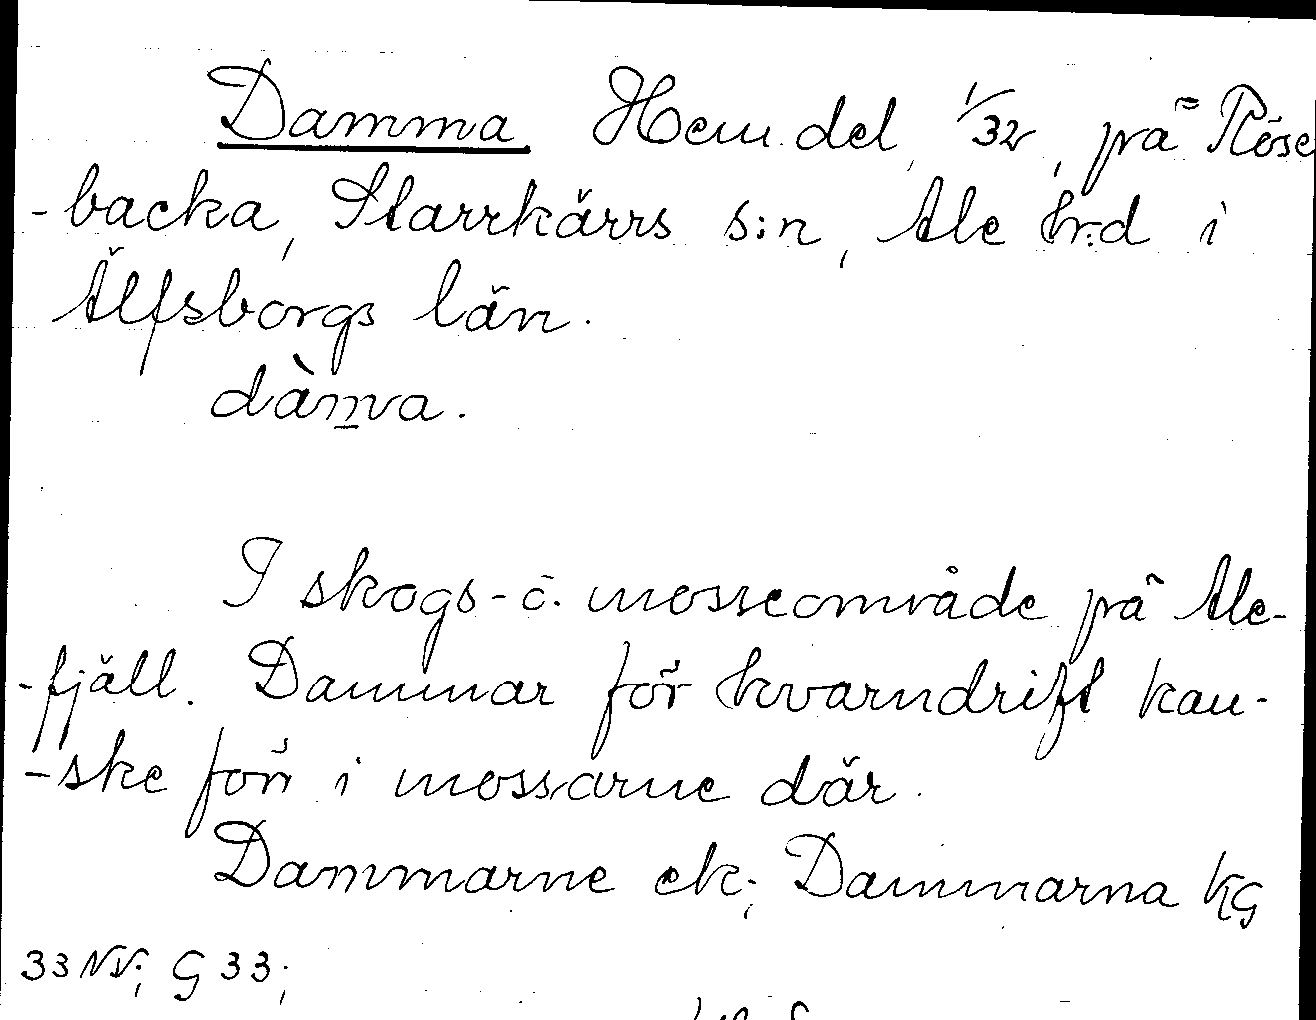 Damma Hem. del, 1/32, på Röse
-backa, Starrkärrs s:n, Ale h:d i
Älfsborgs län.
dàmma.
I skogs- o. mosseområde på Ale-
-fjäll. Dammar för kvarndrift kan-
-ske förr i mossarne där.
Dammarne ek; Dammarna KG
33 NV; G 33;